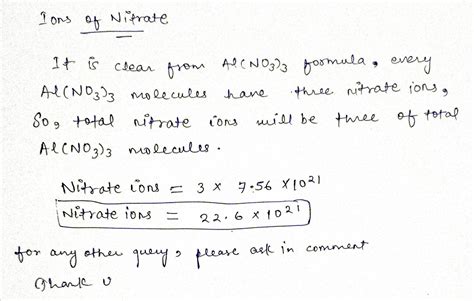 Ions of Nitrate
It is clear from Al(NO3)3 formula, every
Al(NO3)3 molecules have three nitrate ions,
So, total nitrate ions will be three of total
Al(NO3)3 molecules.
Nitrate ions = 3 × 7.56 × 10²¹
Nitrate ions = 22.6 × 10²¹
for any other query, please ask in comment
Thank U